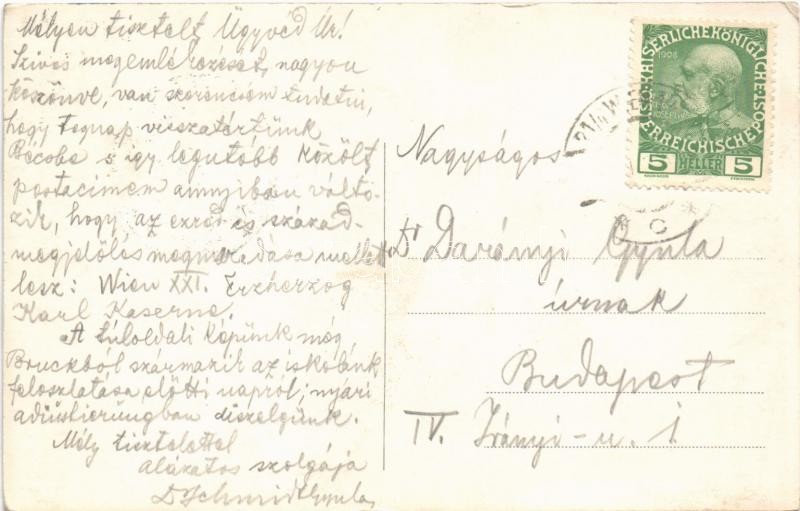 Mélyen tisztelt Ügyvéd Úr!
Szives megemlékezését, nagyon
köszönve, van szerencsém tudatni,
hogy tegnap visszatértünk
Bécsbe s így legutóbb közölt
postacímem annyiban válto-
zik, hogy az ezred és század-
megjelölés megmaradása mellett
lesz: Wien XXI. Erzherzog
Karl Kaserne.
A túloldali képünk még
Bruckból származik az iskolánk
feloszlatása előtti napról; nyári
adjustierungban díszelgünk.
Mély tisztelettel
alázatos szolgája
Dr Schmidt Gyula
Nagyságos
Dr Darányi Gyula
úrnak
Budapest
IV. Irányi-u. 1
KAISERLICHE KÖNIGLICHE
ÖSTERREICHISCHE POST
1908
5 HELLER 5
WIEN
* c *